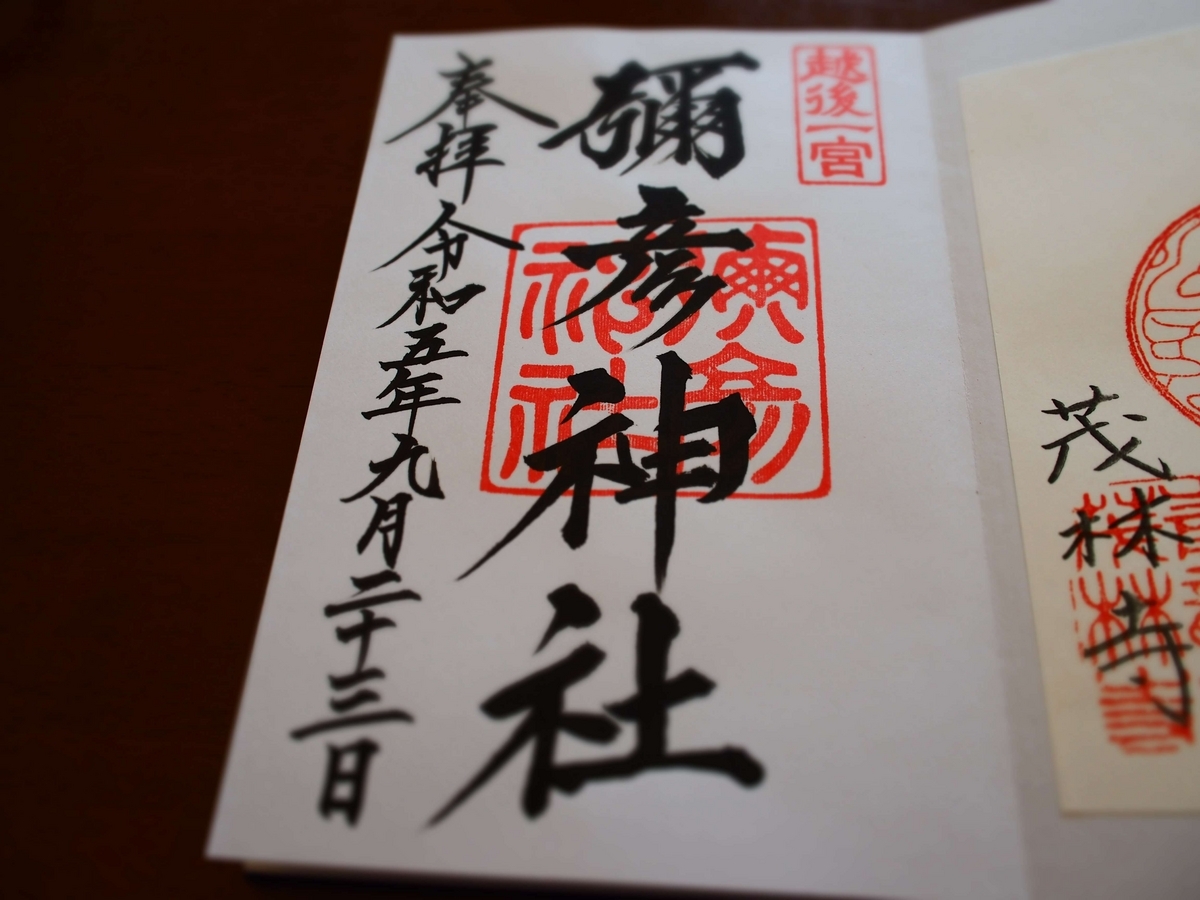 越後一宮
彌彦神社
彌彦神社
奉拝 令和五年九月二十三日
茂林寺